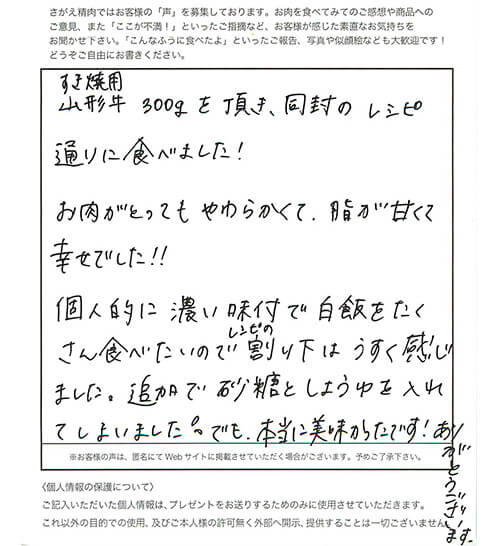 さがえ精肉ではお客様の「声」を募集しております。お肉を食べてみてのご感想や商品への
ご意見、また「ここが不満!」といったご指摘など、お客様が感じた素直なお気持ちを
お聞かせ下さい。「こんなふうに食べたよ」といったご報告、写真や似顔絵なども大歓迎です!
どうぞご自由にお書きください。
すき焼用
山形牛 300gを頂き、同封のレシピ
通りに食べました!
お肉がとってもやわらかくて、脂が甘くて
幸せでした!!
個人的に濃い味付で白飯をたく
レシピの
さん食べたいので割り下はうすく感じ
ました。追加で砂糖としょうゆを入れ
てしまいました。でも、本当に美味かったです!あり
がとうございます。
※お客様の声は、匿名にてWebサイトに掲載させていただく場合がございます。予めご了承下さい。
〈個人情報の保護について〉
ご記入いただいた個人情報は、プレゼントをお送りするためのみに使用させていただきます。
これ以外の目的での使用、及びご本人様の許可無く外部へ開示、提供することは一切ございません。